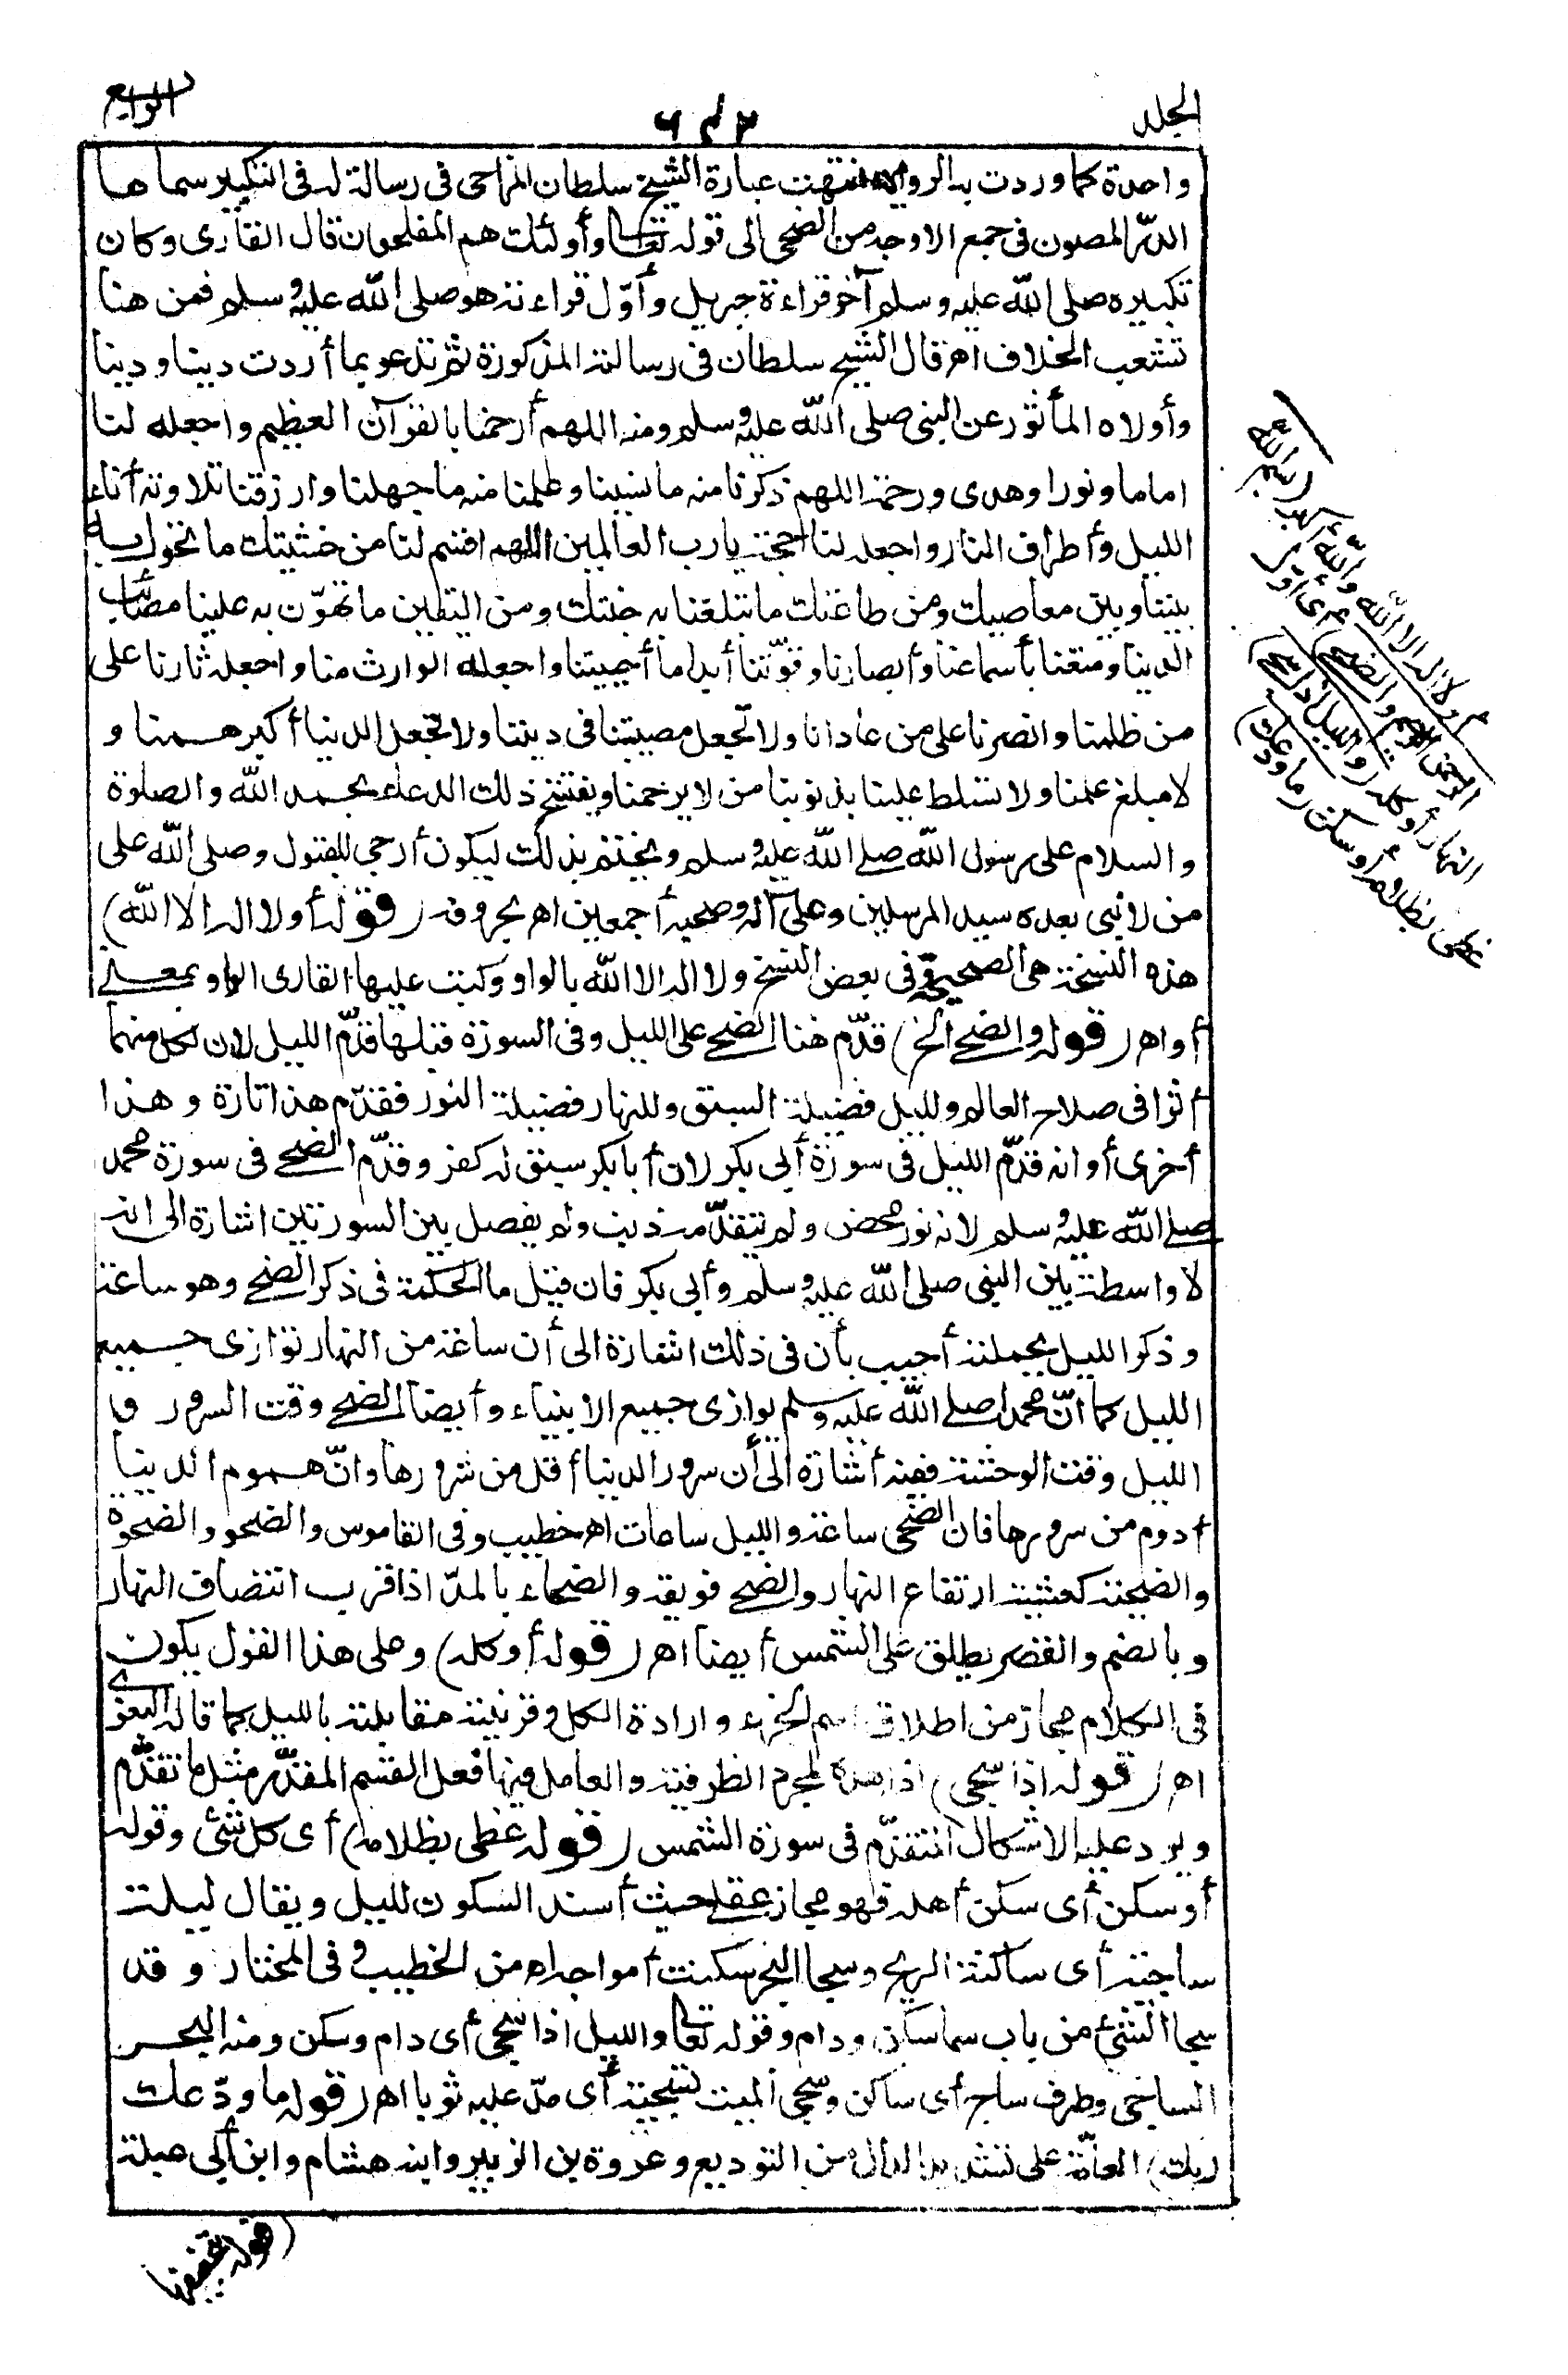 الجلد
الرابع
واحدة كما وردت به الرواية انتهت عبارة الشيخ سلطان المزاحى فى رسالة له فى التكبير سماها
الدرّ المصون فى جمع الاوجه من الضحى الى قوله تعالى وأولئك هم المفلحون قال القارى وكان
تكبيره صلى الله عليه وسلم آخر قراءة جبريل وأوّل قراءته هو صلى الله عليه وسلم فمن هنا
تشعب الخلاف اهـ قال الشيخ سلطان فى رسالته المذكورة ثم تدعو بما أردت دينا و دينا
وأولاه المأثور عن النبى صلى الله عليه وسلم ومنه اللهم أرحمنا بالقرآن العظيم واجعله لنا
اماما ونورا وهدى ورحمة اللهم ذكرنا منه ما نسينا وعلمنا منه ما جهلنا وارزقنا تلاوته أناء
الليل وأطراف النار واجعله لنا حجة يارب العالمين اللهم اقسم لنا من خشيتك ما تحول به
بيننا وبين معاصيك ومن طاعتك ما تبلغنا به جنتك ومن اليقين ما تهوّن به علينا مصائب
الدنيا ومتعنا بأسماعنا وأبصارنا وقوّتنا أبدا ما أحييتنا واجعله الوارث منا واجعله ثارنا على
من ظلمنا وانصرنا على من عادانا ولا تجعل مصيبتنا فى ديننا ولا تجعل الدنيا أكبر همنا و
لا مبلغ علمنا ولا تسلط علينا بذنوبنا من لا يرحمنا ويفتتح ذلك الدعاء بحمد الله والصلوة
والسلام على رسول الله صلى الله عليه وسلم ويختتم بذلك ليكون أرجى للقبول وصلى الله على
من لا نبى بعده سيد المرسلين وعلى آله وصحبه أجمعين اهـ بحروفه (قوله أولا اله الا الله)
هذه النسخة هى الصحيحة وفى بعض النسخ ولا اله الا الله بالواو وكتب عليها القارى الواو بمعنى
أو اهـ (قوله والضحى الخ) قدّم هنا الضحى على الليل وفى السورة قبلها قدّم الليل لان لكل منهما
أثرا فى صلاح العالم ولليل فضيلة السبق وللنهار فضيلة النور فقدّم هذا تارة وهذا
أخرى أو انه قدّم الليل فى سورة أبى بكر لان أبا بكر سبق له كفر وقدّم الضحى فى سورة محمد
صلى الله عليه وسلم لانه نور محض ولم يتقدّمه ذنب ولم يفصل بين السورتين اشارة الى انه
لا واسطة بين النبى صلى الله عليه وسلم وأبى بكر فان قيل ما الحكمة فى ذكر الضحى وهو ساعة
وذكر الليل بجملته أجيب بأن فى ذلك اشارة الى أن ساعة من النهار توازى جميع
الليل كما انّ محمدا صلى الله عليه وسلم يوازى جميع الانبياء وأيضا الضحى وقت السرور و
الليل وقت الوحشة ففيه أشارة الى أن سرور الدنيا أقل من شرورها وانّ هموم الدنيا
أدوم من سرورها فان الضحى ساعة والليل ساعات اهـ خطيب وفى القاموس والضحو والضحوة
والضحية كعشية ارتفاع النهار والضحى فويقه والضحاء بالمدّ اذا قرب انتصاف النهار
وبالضم والقصر يطلق على الشمس أيضا اهـ (قوله أو كله) وعلى هذا القول يكون
فى الكلام مجاز من اطلاق اسم الجزء وارادة الكل وقرينته مقابلته بالليل كما قاله البغوى
اهـ (قوله اذا سجى) اذا هذه لمجرد الظرفية والعامل فيها فعل القسم المقدّر مثل ما تقدّم
ويرد عليه الاشكال المتقدّم فى سورة الشمس (قوله غطى بظلامه) أى كل شئ وقوله
أو سكن أى سكن أهله فهو مجاز عقلى حيث أسند السكون لليل ويقال ليلة
ساجية أى ساكنة الريح وسجا البحر سكنت أمواجه اهـ من الخطيب وفى المختار وقد
سجا الشئ من باب سما سكن ودام وقوله تعالى والليل اذا سجى أى دام وسكن ومنه البحر
الساجى وطرف ساج أى ساكن وسجى الميت تسجية أى مدّ عليه ثوبا اهـ (قوله ما ودّعك
ربك) العامّة على تشديد الدال من التوديع وعروة بن الزبير وابنه هشام وابن أبى عبلة
بسم الله
ولا اله الا الله والله أكبر
الرحمن الرحيم والضحى أى أول
النهار أو كله والليل اذا سجى
غطى بظلامه أو سكن ما ودعك